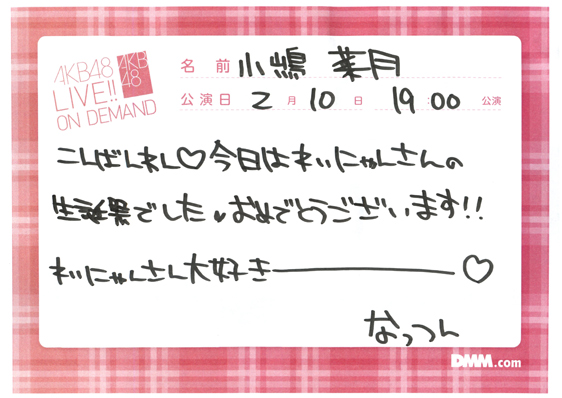 AKB48
LIVE!!
ON DEMAND
AKB
48
名前 小嶋 菜月
公演日 2月10日 19:00 公演
こんばんわん♡今日はれいにゃんさんの
生誕祭でした♥おめでとうございます!!
れいにゃんさん大好きーーーーー♡
なっつん
DMM.com